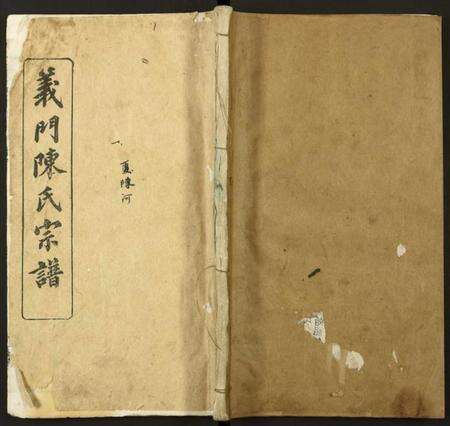 義門陳氏宗譜
一、夏陳河